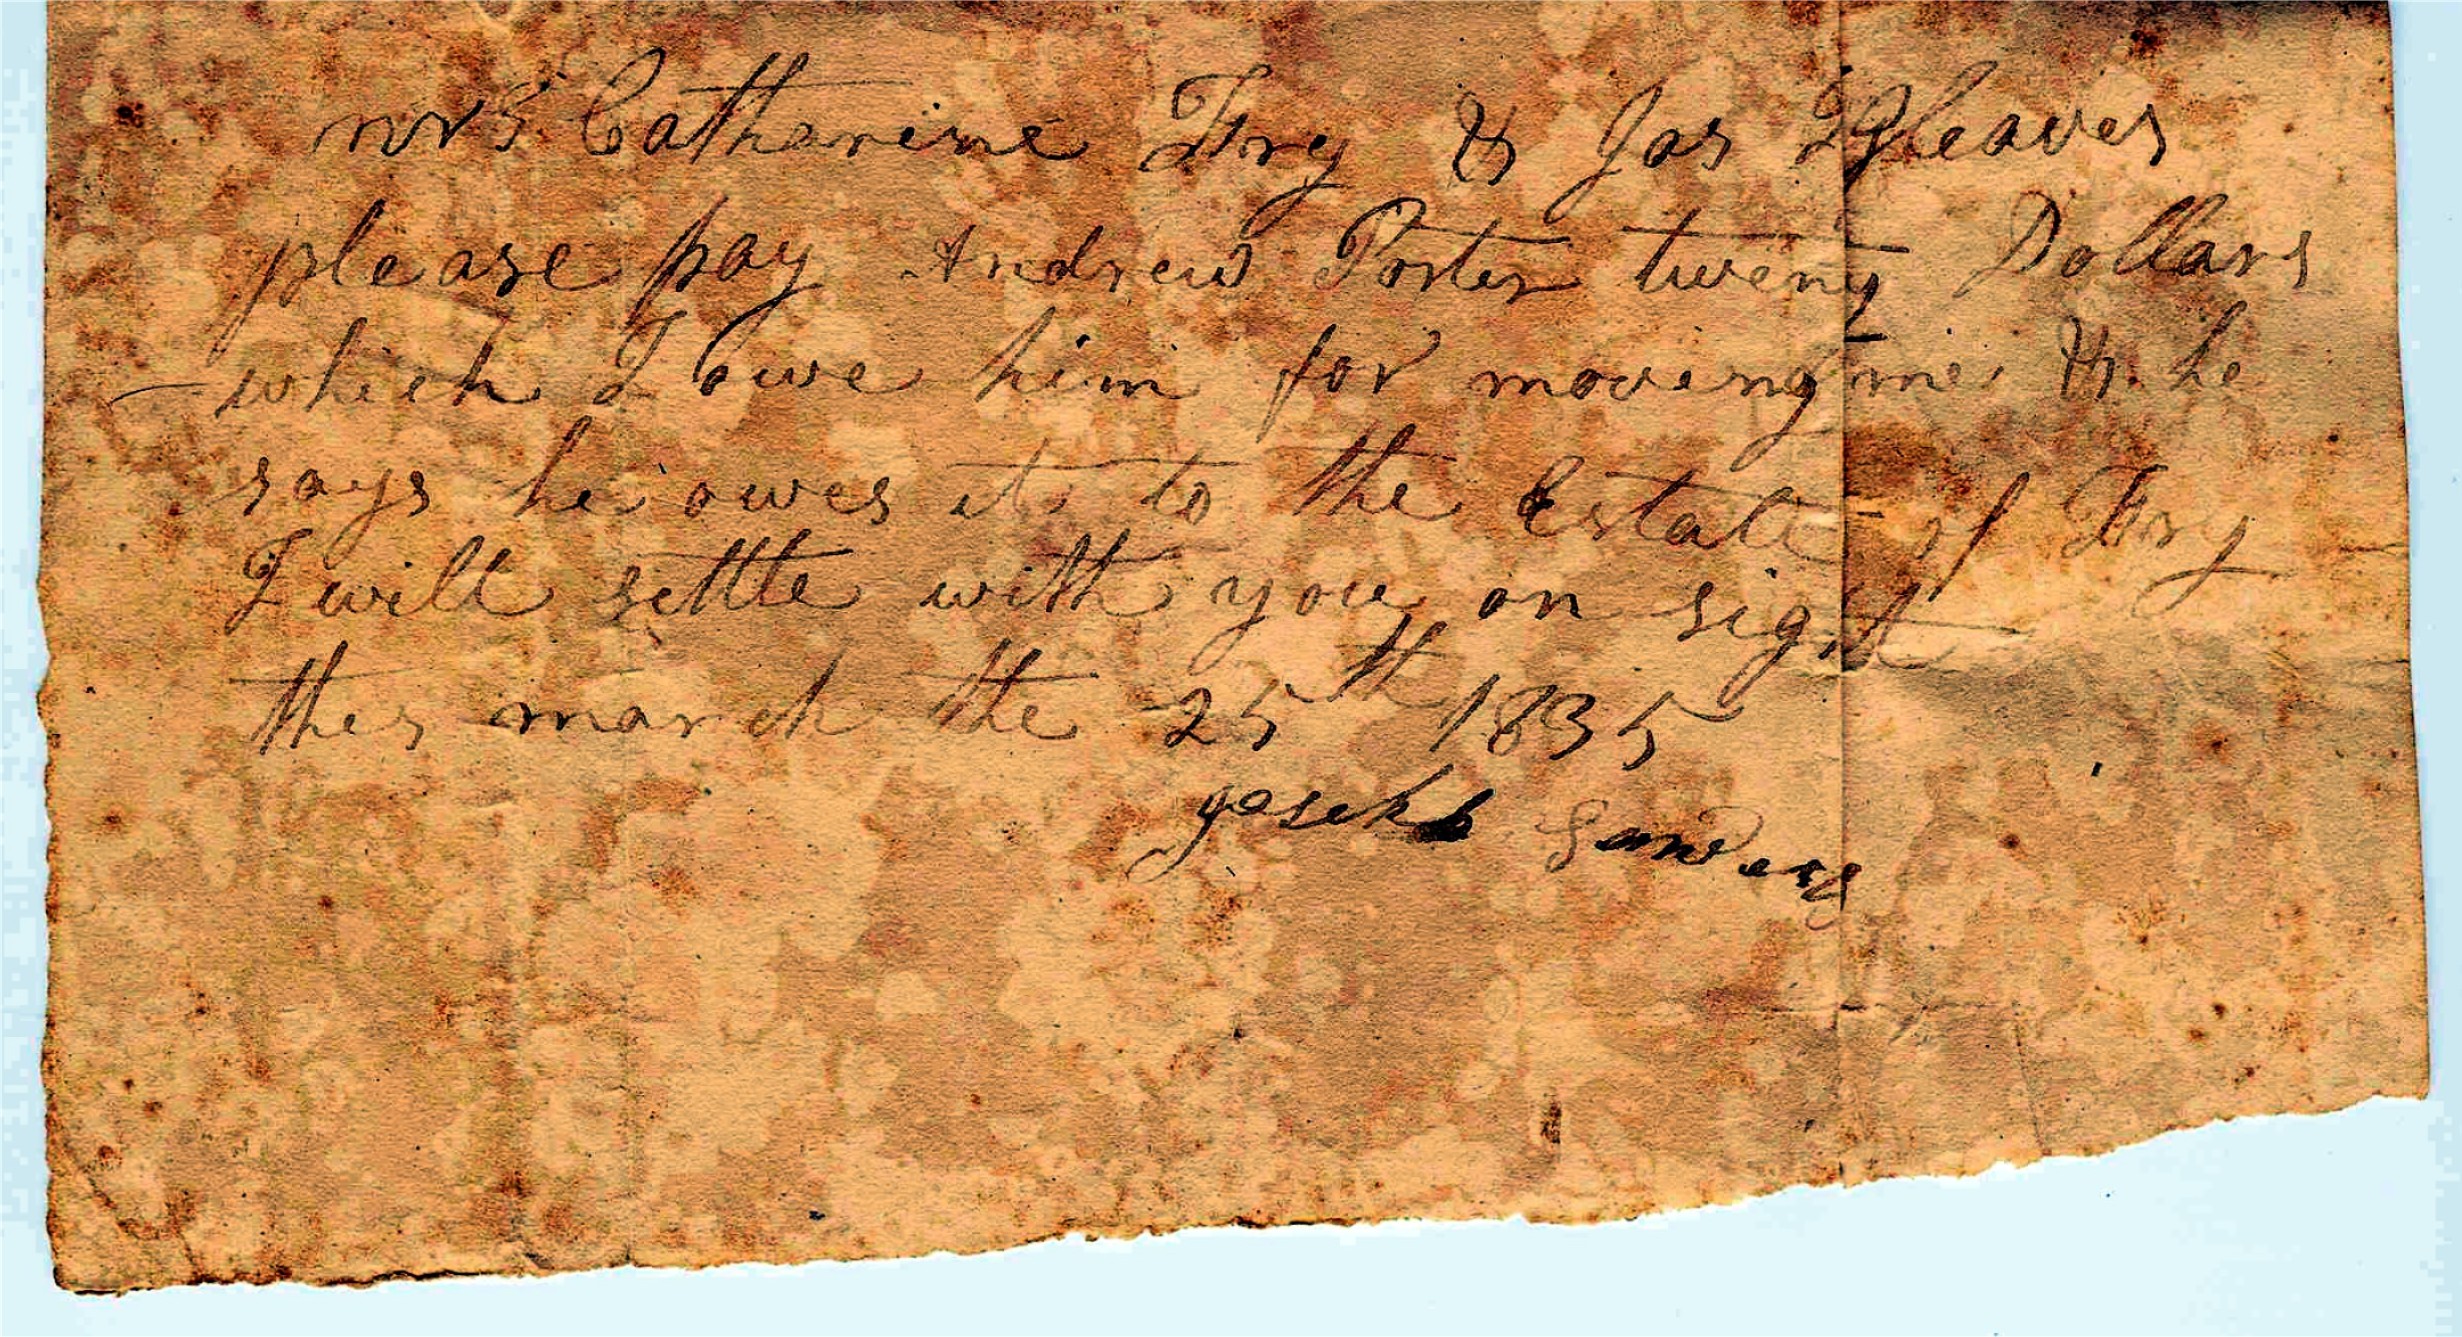 mrs Catharine Fry & Jas Gleaves
please pay Andrew Porter tweny Dollars
which I owe him for moving me & he
says he owes it to the Estate of Fry
I will settle with you on sight
this march the 25th 1835
Joseph Sanders